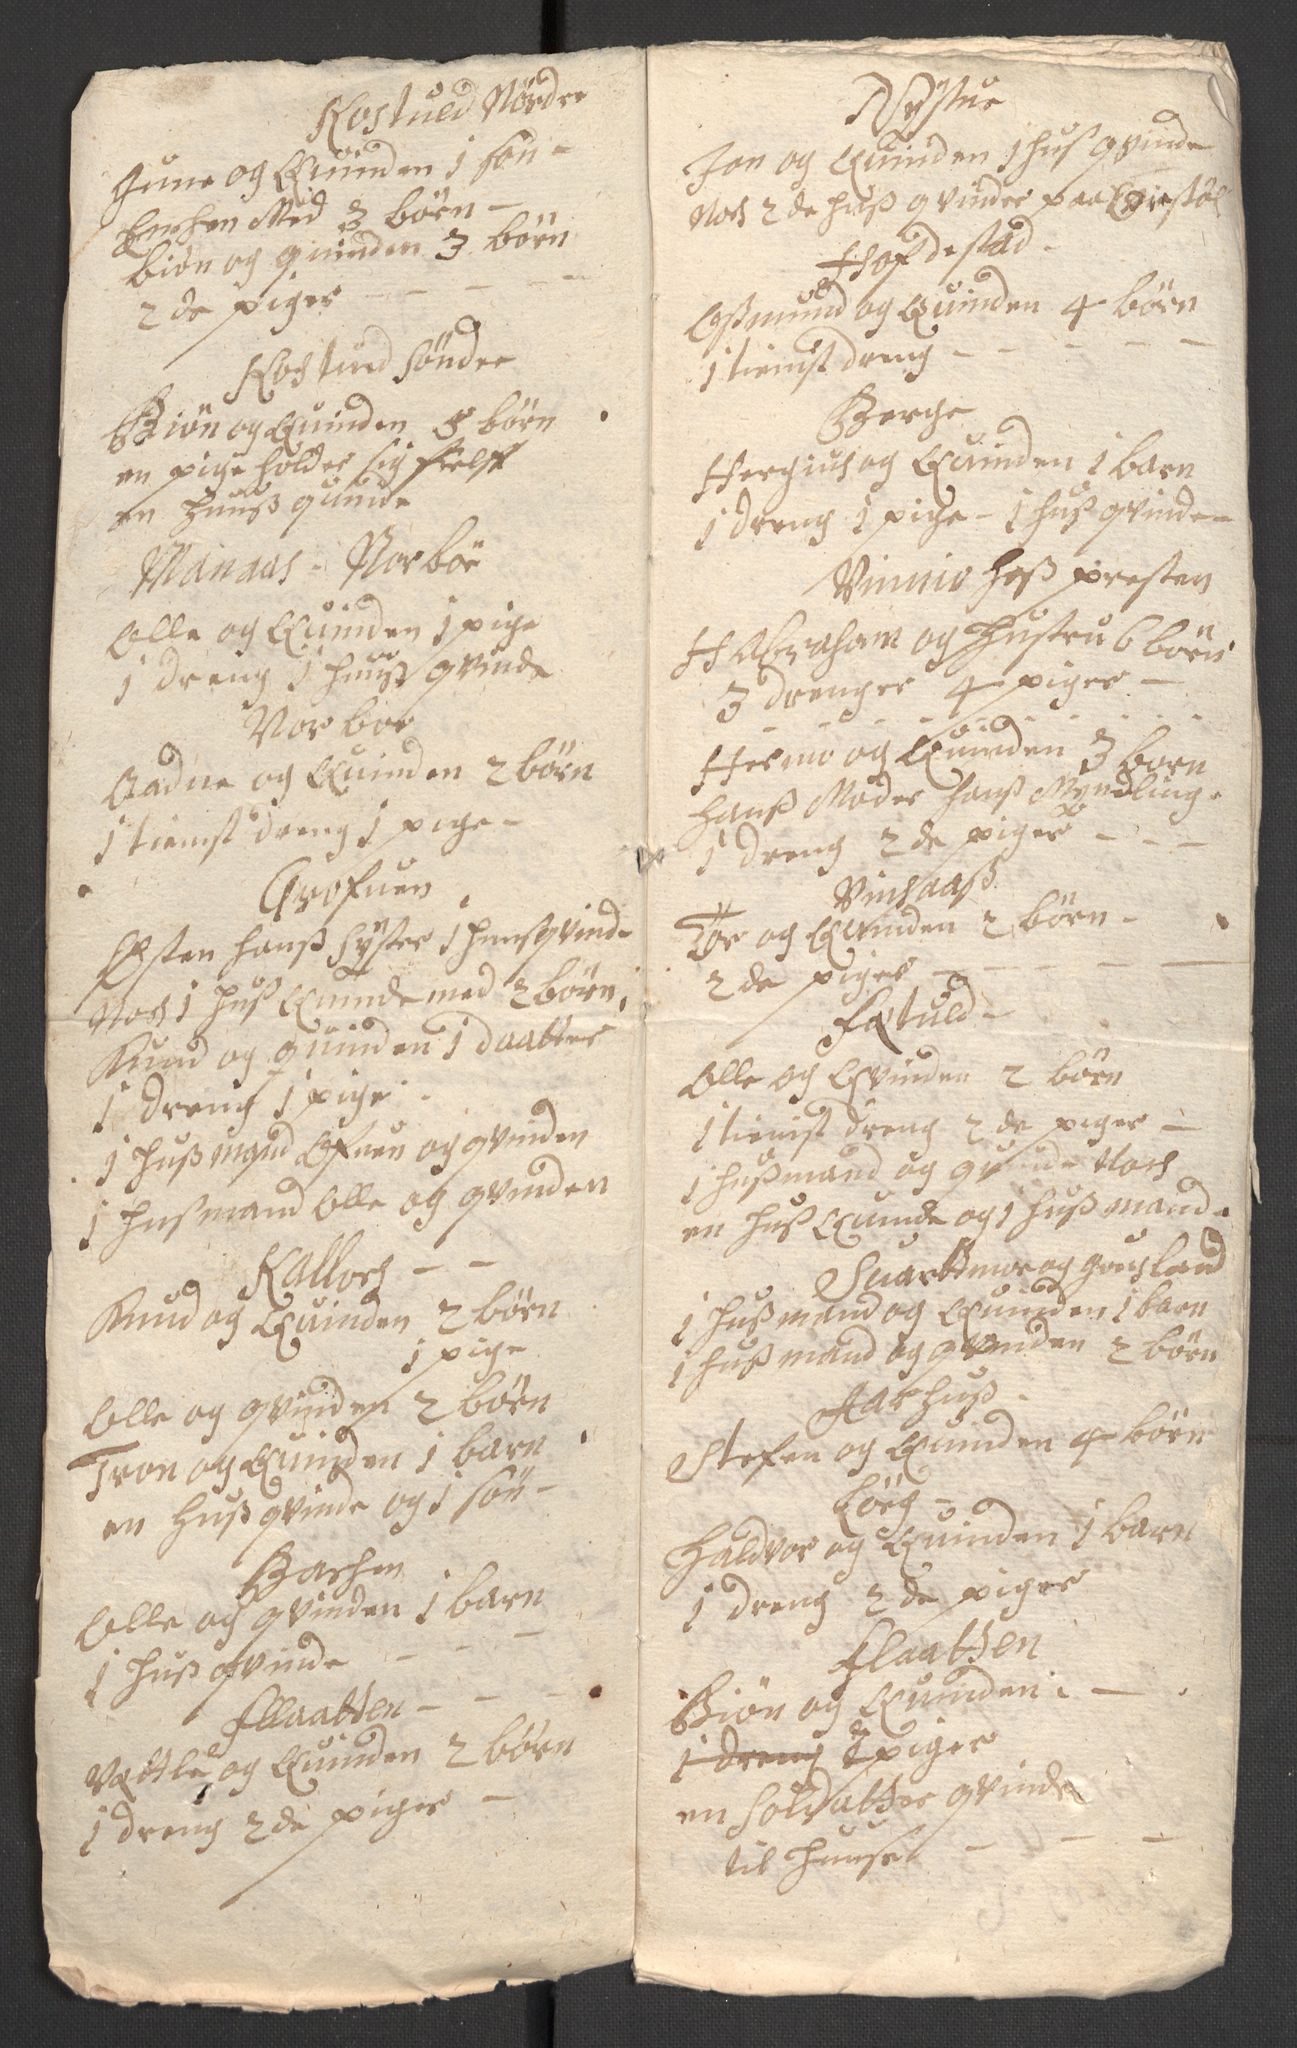 Rostuld Nördre
June og Quinden 1 sön -
Enchen Med 3 börn -
biön og quinden 3 börn
2 de piger - - - -
Rostuld Söndre
Biön og Quinden 5 börn
en pige holder sig self
en Huuß quinde
Manaas - Norböe
Olle og Quinden 1 pige
1 dreng 1 huuß qvinde
Nor böe
Aadne og Quinden 2 börn
1 tienist dreng 1 pige -
Grofuen
Östen hanß Syster 1 huusqvind-
Noch 1 huß Quinde med 2 börn
Knud og quinden 1 daatter
1 dreng 1 pige.
1 hußmand Efuen og qvinden
1 husmand Olle og qvinden
Kalloch - -
Knud og Quinden 2 börn
1 pige
Olle og qvinden 2 börn
Tron og Quinden 1 barn
en Huß qvinde og 1 sön -
Bachen
Olle og qvinden 1 barn
1 huß qvinde - - -
Flaatten - - -
Vettle og Quinden 2 börn
1 dreng 2 de piger -
Nÿstue
Jon og Quinden 1 huß qvinde
Noch 2 de huß qvinder paa
Hofdestad -
Oßmund og Quinden 4 börn
1 tienist dreng - - - - -
Berge
Hergius og Quinden 1 barn
1 dreng 1 pige - 1 huß qvinde -
Vinnie hoß presten
H Abraham og Hustru 6 börn
3 drenger 4 piger -
Herme og Quinden 3 born
hanß Moder hanß Myndling -
1 dreng 2 de piger - - -
Vinsaaß
Tor og Quinden 2 börn -
2 de piger - - - - -
Extuld -
Olle og Qvinden 2 börn
1 tienist dreng 2 de piger -
1 hußmand og qvinde Noch
en huß Quinde og 1 huß mand -
Suartmoe og
1 huß mand og Quinden 1 barn
1 huß mand og qvinden 2 börn
Aarhuß -
Stefen og Quinden 4 börn
Haldvor og Quinden 1 barn
1 dreng 2 de piger
Flaatten
Biön og Quinden. -
1 dreng 2 piger
en Soldatter qvinde
til huuse - - -